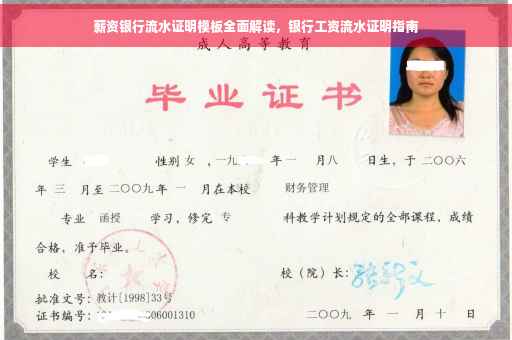 薪资银行流水证明模板全面解读，银行工资流水证明指南
成人高等教育
毕业证书
学生 性别 女 ，一九 年 一 月 八 日生，于 二〇〇六
年 三 月至 二〇〇九 年 一 月在本校 财务管理
专业 函授 学习，修完 专 科教学计划规定的全部课程，成绩
合格，准予毕业。
校 名： 校（院）长：
批准文号：教计[1998]33号
证书编号： 06001310 二〇〇九 年 一 月 十 日